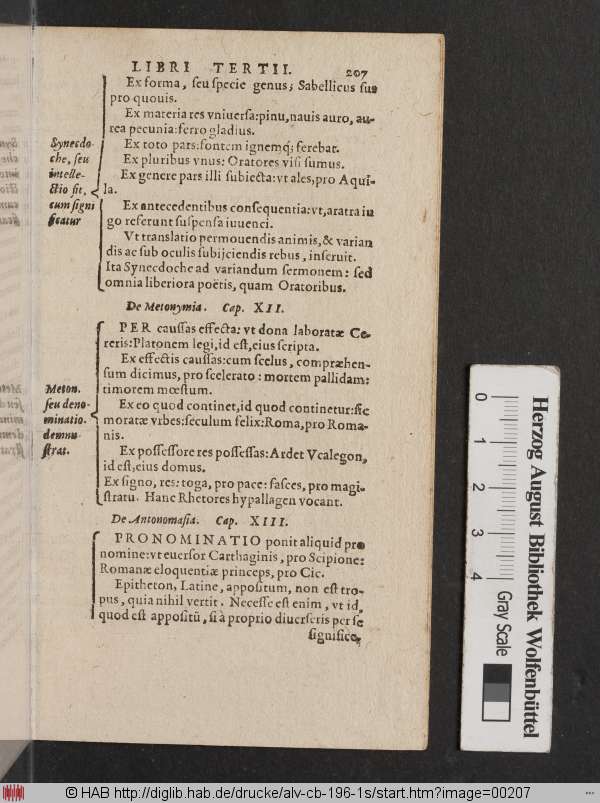 LIBRI TERTII. 207
Ex forma, seu specie genus; Sabellicus sus
pro quouis.
Ex materia res vniuersa: pinu, nauis auro, au-
rea pecunia: ferro gladius.
Ex toto pars: fontem ignemq́; ferebat.
Ex pluribus vnus: Oratores visi sumus.
Ex genere pars illi subiecta: vt ales, pro Aqui-
la.
Synecdo-
che, seu
intelle-
ctio fit,
cum signi
ficatur
Ex antecedentibus consequentia: vt, aratra iu
go referunt suspensa iuuenci.
Vt translatio permouendis animis, & varian
dis ac sub oculis subijciendis rebus, inseruit.
Ita Synecdoche ad variandum sermonem: sed
omnia liberiora poëtis, quam Oratoribus.
De Metonymia. Cap. XII.
PER caussas effecta: vt dona laboratæ Ce-
reris: Platonem legi, id est, eius scripta.
Ex effectis caussas: cum scelus, compræhen-
sum dicimus, pro scelerato: mortem pallidam:
timorem mœstum.
Meton.
seu deno-
minatio.
demon-
strat.
Ex eo quod continet, id quod continetur: sic
moratæ vrbes: seculum felix: Roma, pro Roma-
nis.
Ex possessore res possessas: Ardet Vcalegon,
id est, eius domus.
Ex signo, res: toga, pro pace: fasces, pro magi-
stratu. Hanc Rhetores hypallagen vocant.
De Antonomasia. Cap. XIII.
PRONOMINATIO ponit aliquid pro
nomine: vt euersor Carthaginis, pro Scipione:
Romanæ eloquentiæ princeps, pro Cic.
Epitheton, Latine, appositum, non est tro-
pus, quia nihil vertit. Necesse est enim, vt id,
quod est appositũ, si à proprio diuerseris per se
significe,
0 1 2 3 4
Herzog August Bibliothek Wolfenbüttel
Gray Scale
© HAB http://diglib.hab.de/drucke/alv-cb-196-1s/start.htm?image=00207